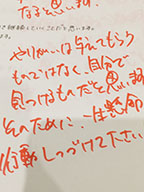 なると思います。
やりがいは与えてもらう
ものではなく、自分で
見つけるものだと思います
そのために、一生懸命
行動しつづけて下さい